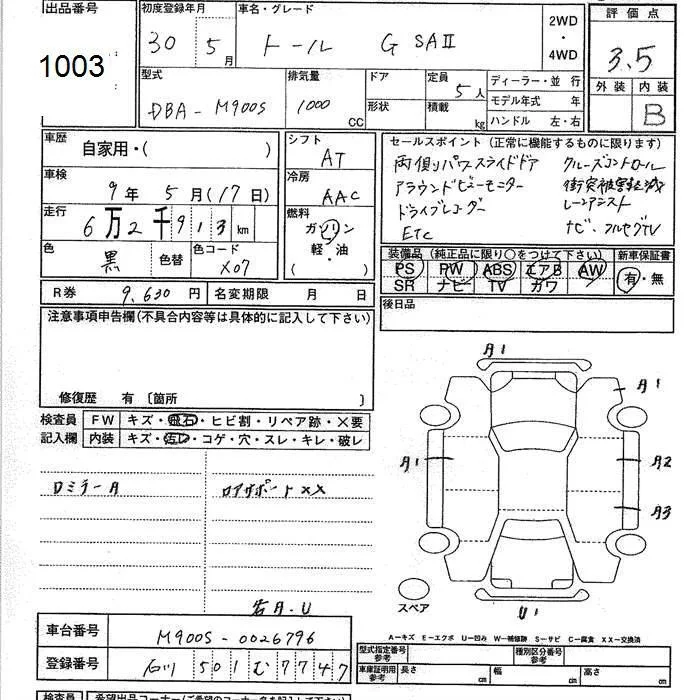 出品番号 初度登録年月 車名・グレード 2WD・4WD 評価点
1003 30 5月 トール G SAⅡ 3.5
外装 内装
B
型式 排気量 ドア 定員 ディーラー・並行
DBA-M900S 1000CC 形状 5人 モデル年式 年
積載 kg ハンドル 左・右
車歴 自家用・( )
シフト AT
セールスポイント(正常に機能するものに限ります)
両側パワースライドドア クルーズコントロール
アラウンドビューモニター 衝突被害軽減
ドライブレコーダー レーンアシスト
ETC ナビ・フルセグTV
車検 9年 5月(17日)
冷房 AAC
走行 6万2千913km
燃料 ガソリン・軽・油( )
色 黒 色替 色コード X07
装備品(純正品に限り○をつけて下さい) 新車保証書
PS PW ABS エアB AW 有・無
SR ナビ TV ガワ
R券 9,630円 名変期限 月 日
後日品
注意事項申告欄(不具合内容等は具体的に記入して下さい)
修復歴 有〔箇所 〕
検査員記入欄 FW キズ・飛石・ヒビ割・リペア跡・×要
内装 キズ・汚れ・コゲ・穴・スレ・キレ・破レ
A1
A1
A1 A2
A3
U1
スペア
ロアサポートXX
A・U
A-キズ E-エクボ U-凹み W-補修跡 S-サビ C-腐食 XX-交換済
車台番号 M900S-0026796
型式指定番号参考 種別区分番号参考
登録番号 石川 501む7747
車庫証明用参考 長さ cm 幅 cm 高さ cm
検査員 希望出品コーナー